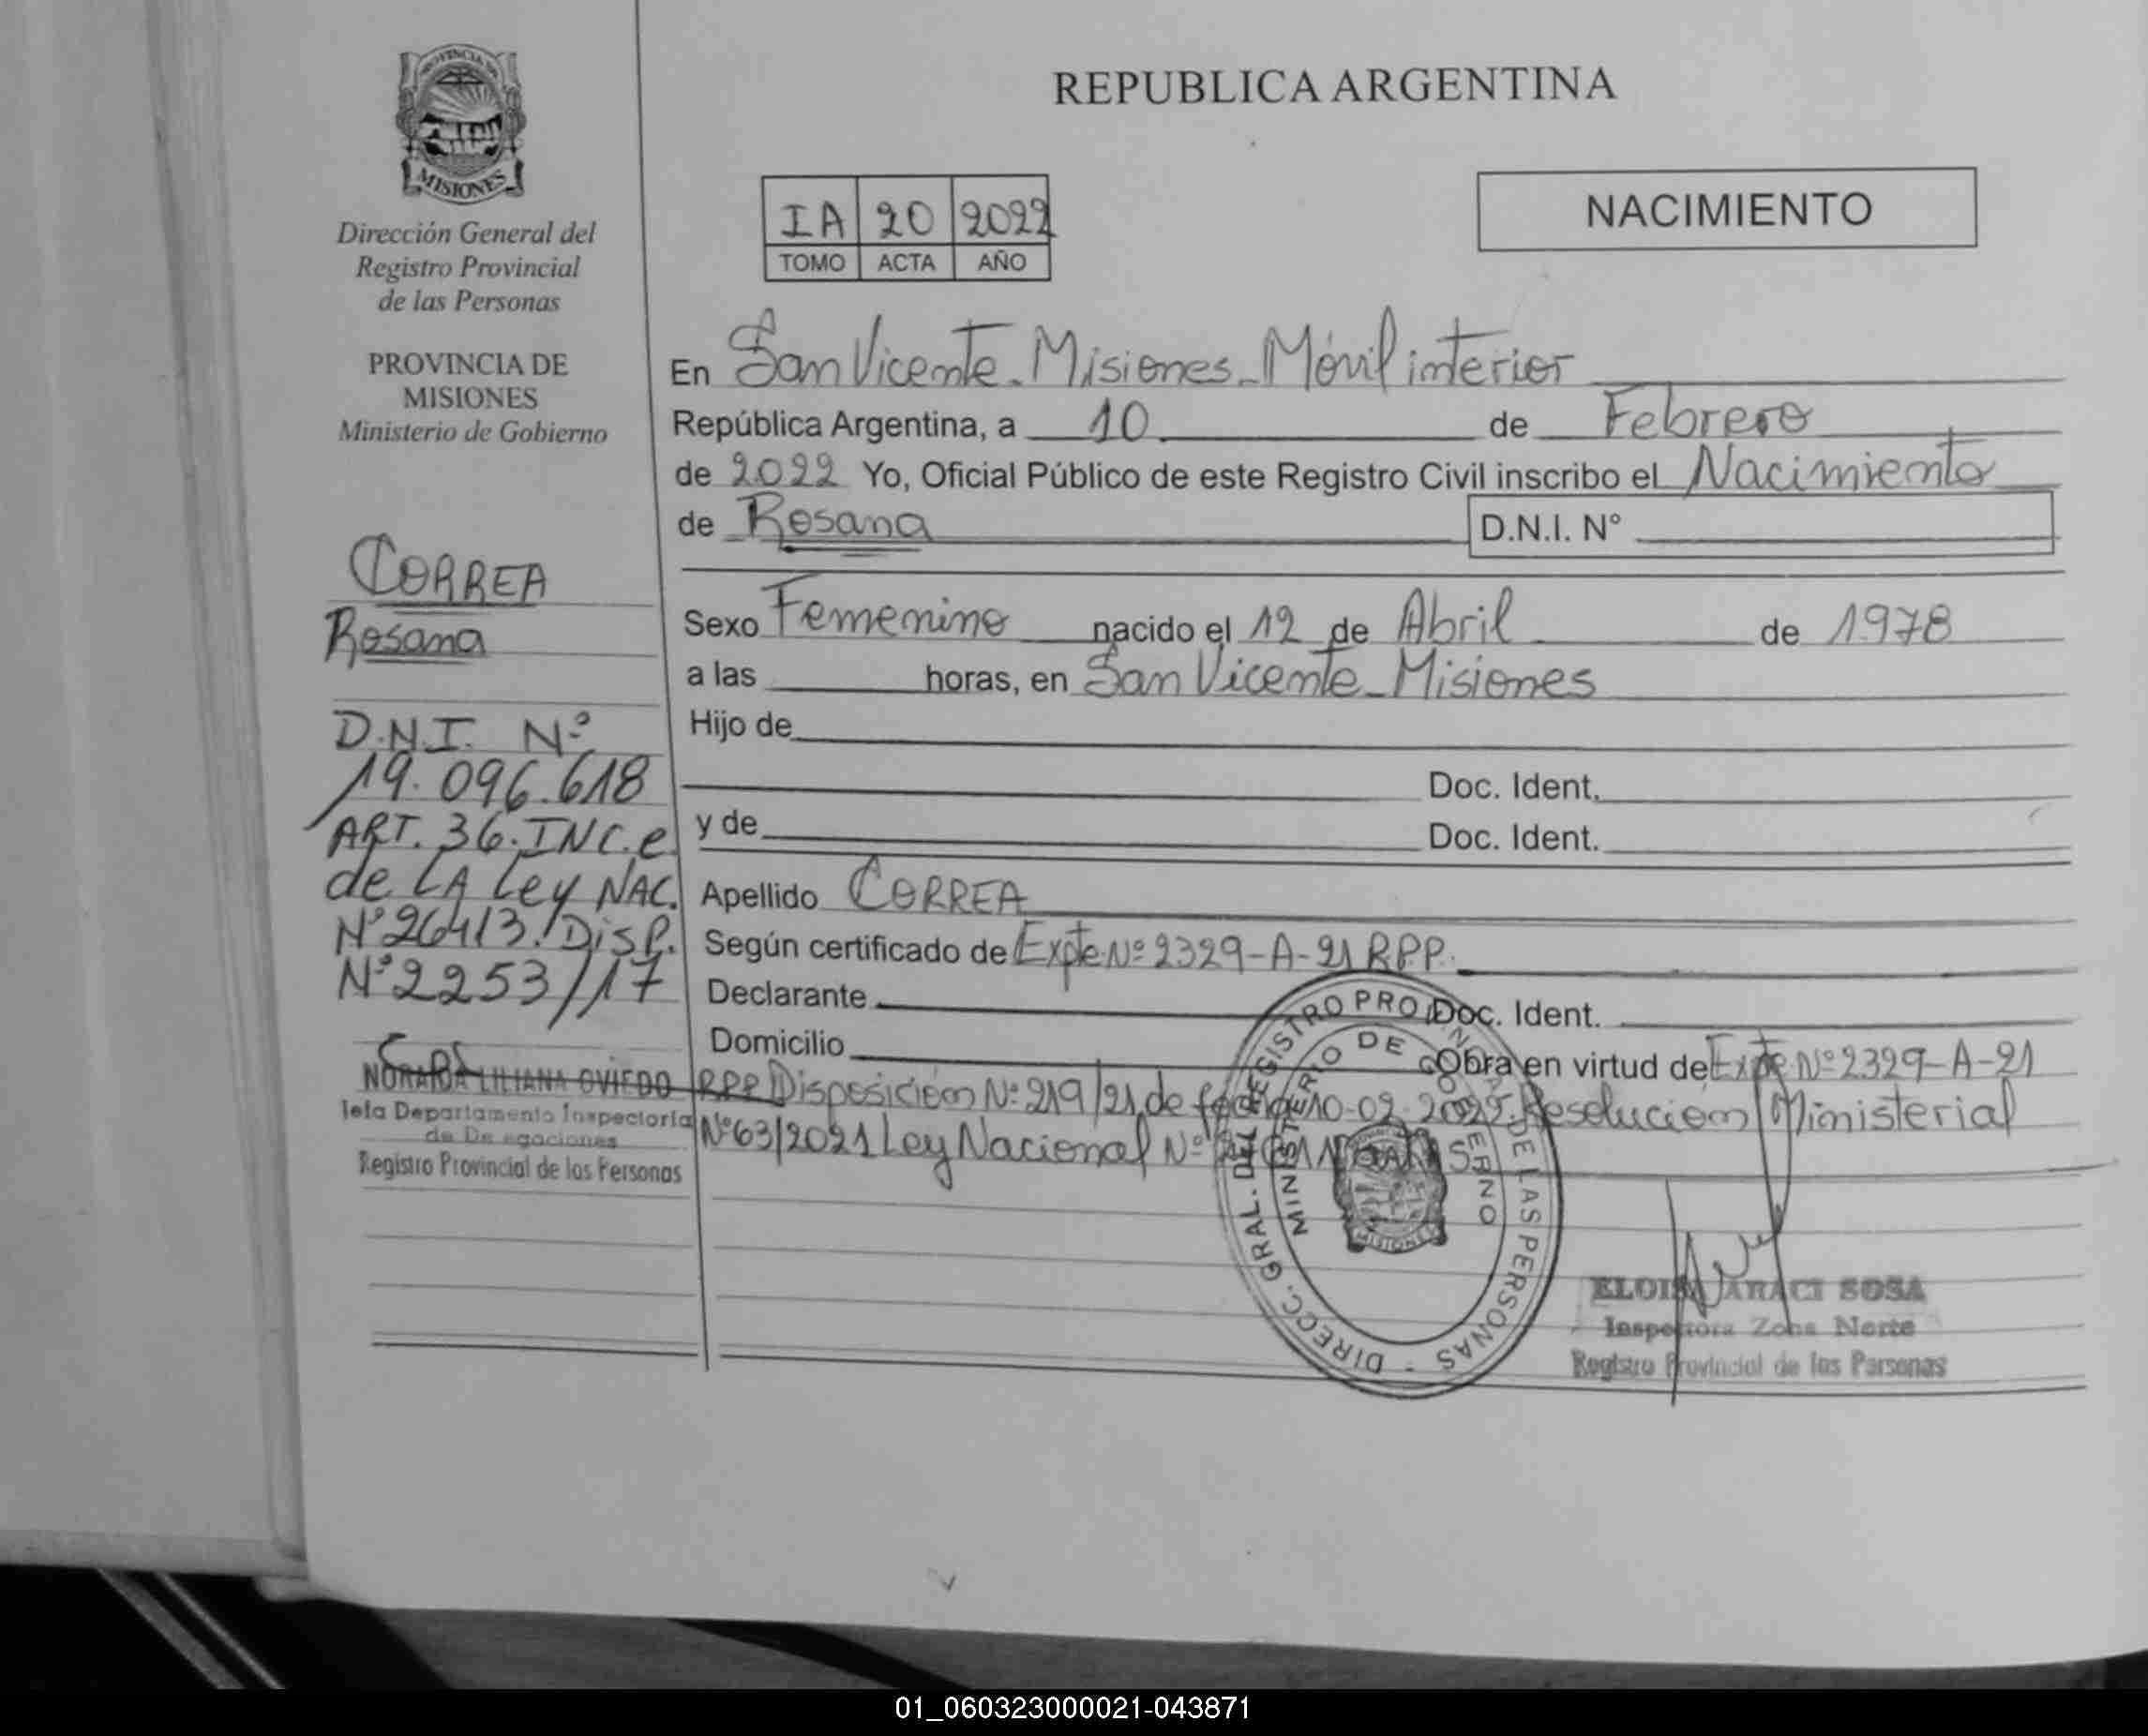 PROVINCIA DE
MISIONES
Dirección General del
Registro Provincial
de las Personas
PROVINCIA DE
MISIONES
Ministerio de Gobierno
CORREA
Rosana
D.N.I. Nº
19.096.618
ART. 36. INC. e
de LA Ley NAC.
Nº 26413. Disp.
Nº 2253/17
NORAIDA LILIANA OVIEDO
Jefa Departamento Inspectoria
de Delegaciones
Registro Provincial de las Personas
REPUBLICA ARGENTINA
NACIMIENTO
IA 20 2022
TOMO ACTA AÑO
En San Vicente - Misiones - Móvil interior
República Argentina, a 10 de Febrero
de 2022 Yo, Oficial Público de este Registro Civil inscribo el Nacimiento
de Rosana D.N.I. N°
Sexo Femenino nacido el 12 de Abril de 1978
a las horas, en San Vicente - Misiones
Hijo de
Doc. Ident.
y de Doc. Ident.
Apellido CORREA
Según certificado de Expte. Nº 2329-A-21 R.P.P.
Declarante Doc. Ident.
Domicilio Obra en virtud de Expte Nº 2329-A-21
RPP Disposición Nº 219/21 de Resolución Ministerial
Nº 63/2021 Ley Nacional Nº
DIRECC. GRAL. DEL REGISTRO PROVINCIAL DE LAS PERSONAS -
MINISTERIO DE GOBIERNO
MISIONES
ELOISA ARACI SOSA
Inspectora Zona Norte
Registro Provincial de las Personas
01_060323000021-043871